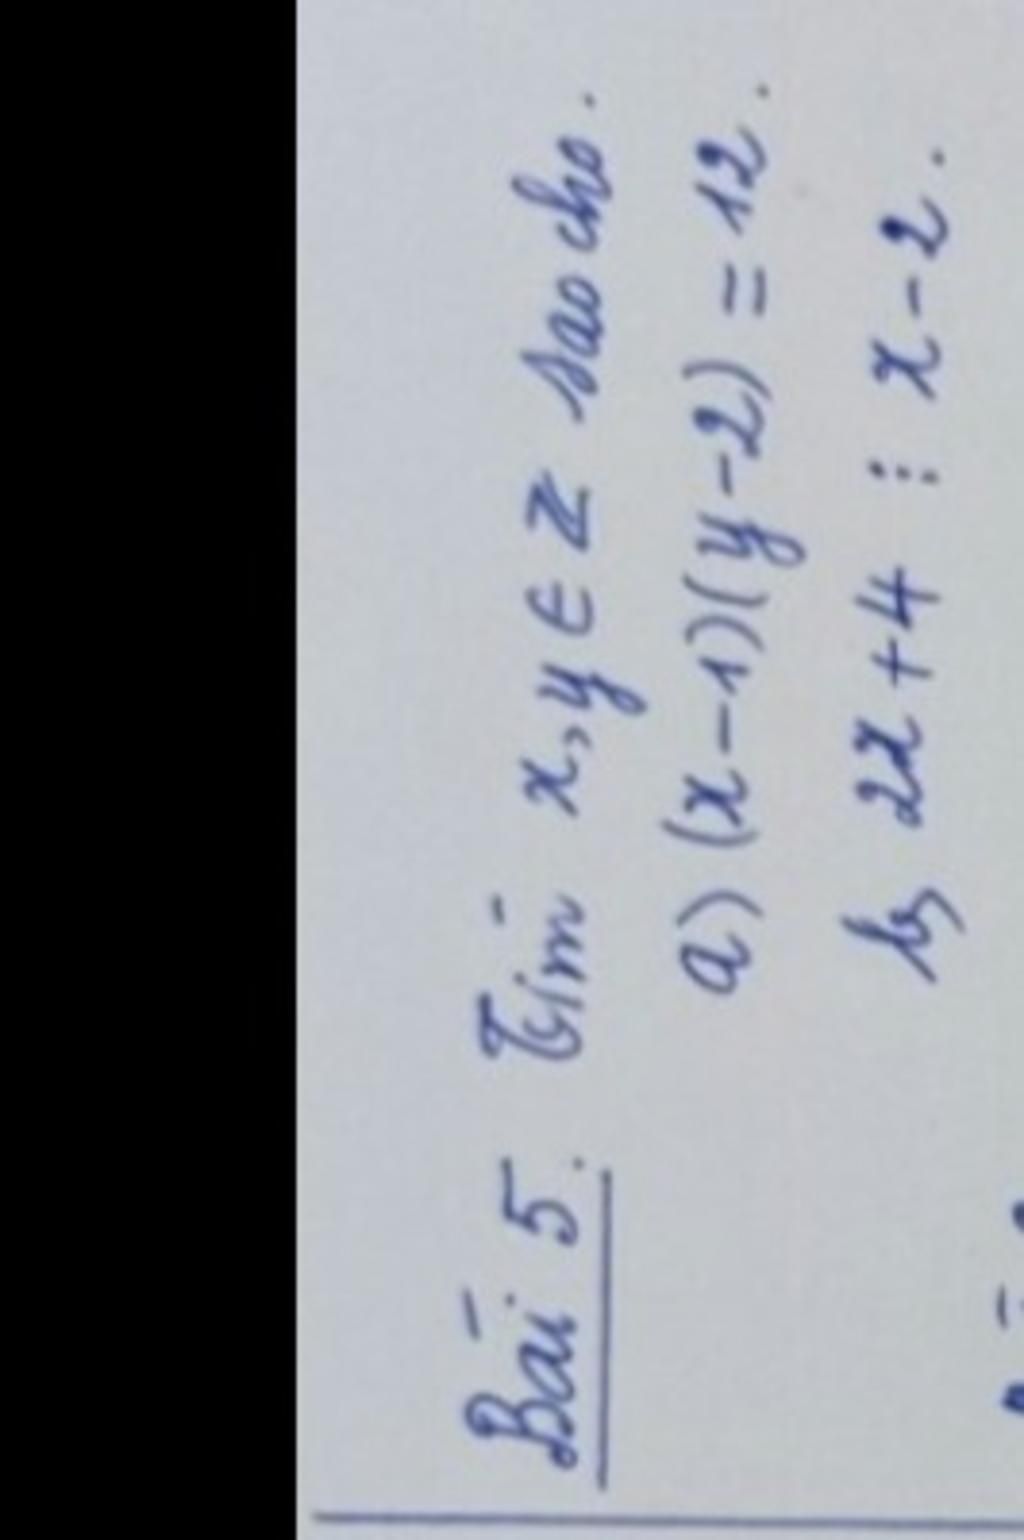 Bài 5. Tìm x, y ∈ Z sao cho.
a) (x-1)(y-2) = 12.
b) 2x+4 ⋮ x-2.